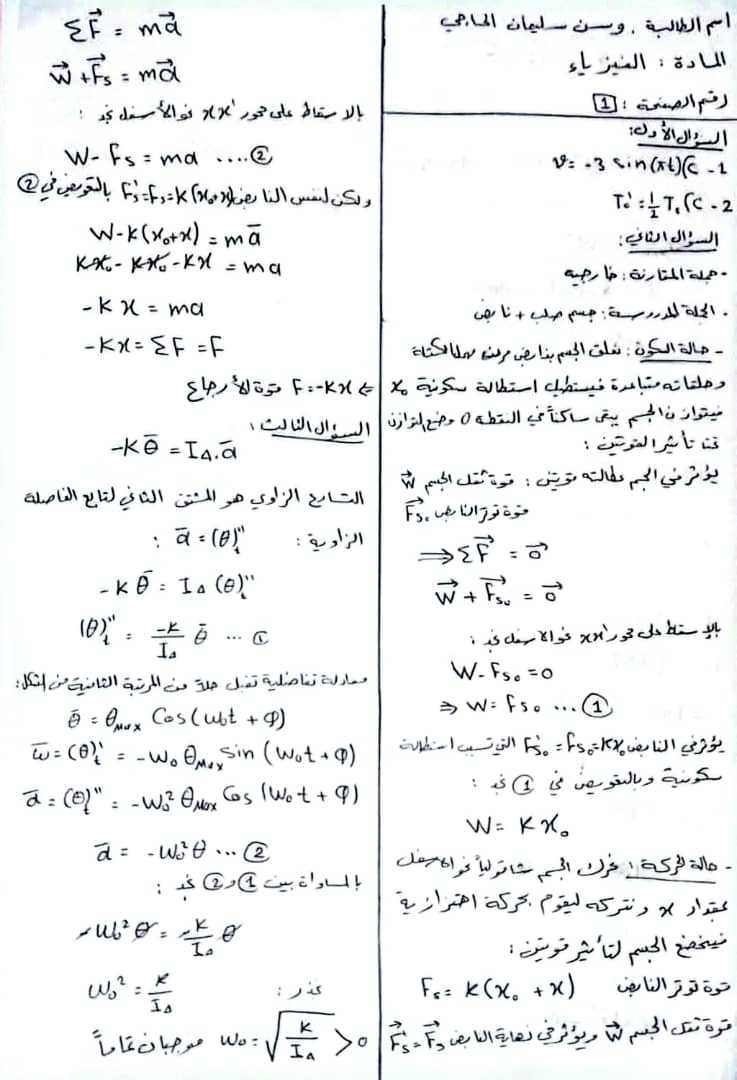 اسم الطالبة : وسن سليمان الحاجي
المادة : الفيزياء
رقم الصفحة : 1
السؤال الأول:
1 - C) v = -3 sin(πt)
2 - C) T₀' = ½ T₀
السؤال الثاني:
- جملة المقارنة : خارجية
- الجملة المدروسة : جسم صلب + نابض
- حالة السكون : نعلق الجسم بنابض مرن مهمل الكتلة
وحلقاته متباعدة فيستطيل استطالة سكونية x₀
فيتوازن الجسم يبقى ساكناً في النقطة O وضع التوازن
تحت تأثير القوتين :
يؤثر في الجسم عطالته قوتين : قوة ثقل الجسم W⃗
قوة توتر النابض F⃗s₀
⟹ ΣF⃗ = 0⃗
W⃗ + F⃗s₀ = 0⃗
بالإسقاط على محور xx' نحو الأسفل نجد :
W - Fs₀ = 0
⇒ W = Fs₀ ... ①
يؤثر في النابض F's₀ = Fs₀ = Kx₀ التي تسبب استطالة
سكونية وبالتعويض في ① نجد :
W = K x₀
- حالة الحركة : نحرك الجسم شاقولياً نحو الأسفل
بمقدار x ونتركه ليقوم بحركة اهتزازية
فيخضع الجسم لتأثير قوتين :
قوة توتر النابض Fs = K(x₀ + x)
قوة ثقل الجسم W⃗ ويؤثر في نهاية النابض F⃗'s = F⃗s
ΣF⃗ = ma⃗
W⃗ + F⃗s = ma⃗
بالاسقاط على محور xx' نحو الأسفل نجد :
W - Fs = ma .... ②
ولكن لنفس النابض F's = Fs = K(x₀+x) بالتعويض في ②
W - K(x₀+x) = ma̅
Kx₀ - Kx₀ - Kx = ma
-Kx = ma
-Kx = ΣF = F
⇒ F = -Kx قوة الأرجاع
السؤال الثالث :
-Kθ̅ = I_Δ . a̅
التسارع الزاوي هو المشتق الثاني لتابع الفاصلة
الزاوية : a̅ = (θ)ₜ'' :
-Kθ̅ = I_Δ (θ)ₜ''
(θ)ₜ'' = -K/I_Δ θ̅ ... ①
معادلة تفاضلية تقبل حلاً من المرتبة الثانية من الشكل :
θ̅ = θMax Cos(ω₀t + φ)
ω̅ = (θ)ₜ' = -ω₀ θMax sin(ω₀t + φ)
a̅ = (θ)ₜ'' = -ω₀² θMax Cos(ω₀t + φ)
a̅ = -ω₀²θ ... ②
بالمساواة بين ① و ② نجد :
-ω₀² θ = -K/I_Δ θ
ω₀² = K/I_Δ نجذر :
ω₀ = √(K/I_Δ) > 0 موجبان تماماً